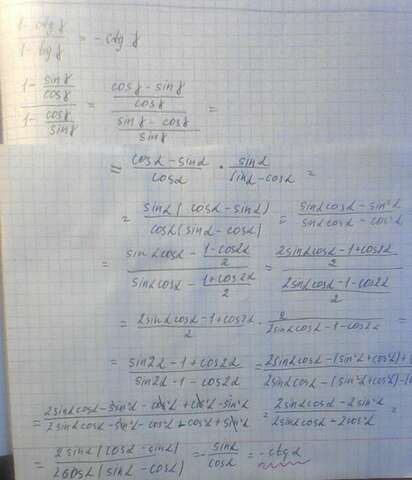 1 - ctg γ / 1 - tg γ = - ctg γ
(1 - sin γ / cos γ) / (1 - cos γ / sin γ) = ((cos γ - sin γ) / cos γ) / ((sin γ - cos γ) / sin γ) =
= (cosα - sinα) / cosα · sinα / (sinα - cosα) =
= sinα (cosα - sinα) / cosα (sinα - cosα) = (sinα cosα - sin²α) / (sinα cosα - cos²α)
= (sinα cosα - (1 - cos2α) / 2) / (sinα cosα - (1 + cos2α) / 2) = ((2sinα cosα - 1 + cos2α) / 2) / ((2sinα cosα - 1 - cos2α) / 2)
= (2sinα cosα - 1 + cos2α) / 2 · 2 / (2sinα cosα - 1 - cos2α) =
= (sin2α - 1 + cos2α) / (sin2α - 1 - cos2α) = (2sinα cosα - (sin²α + cos²α) + / 2sinα cosα - (sin²α + cos²α) - (
= (2sinα cosα - sin²α - cos²α + cos²α - sin²α) / (2sinα cosα - sin²α - cos²α - cos²α + sin²α) = (2sinα cosα - 2sin²α) / (2sinα cosα - 2cos²α) =
= 2sinα (cosα - sinα) / 2cosα (sinα - cosα) = - sinα / cosα = - ctg α